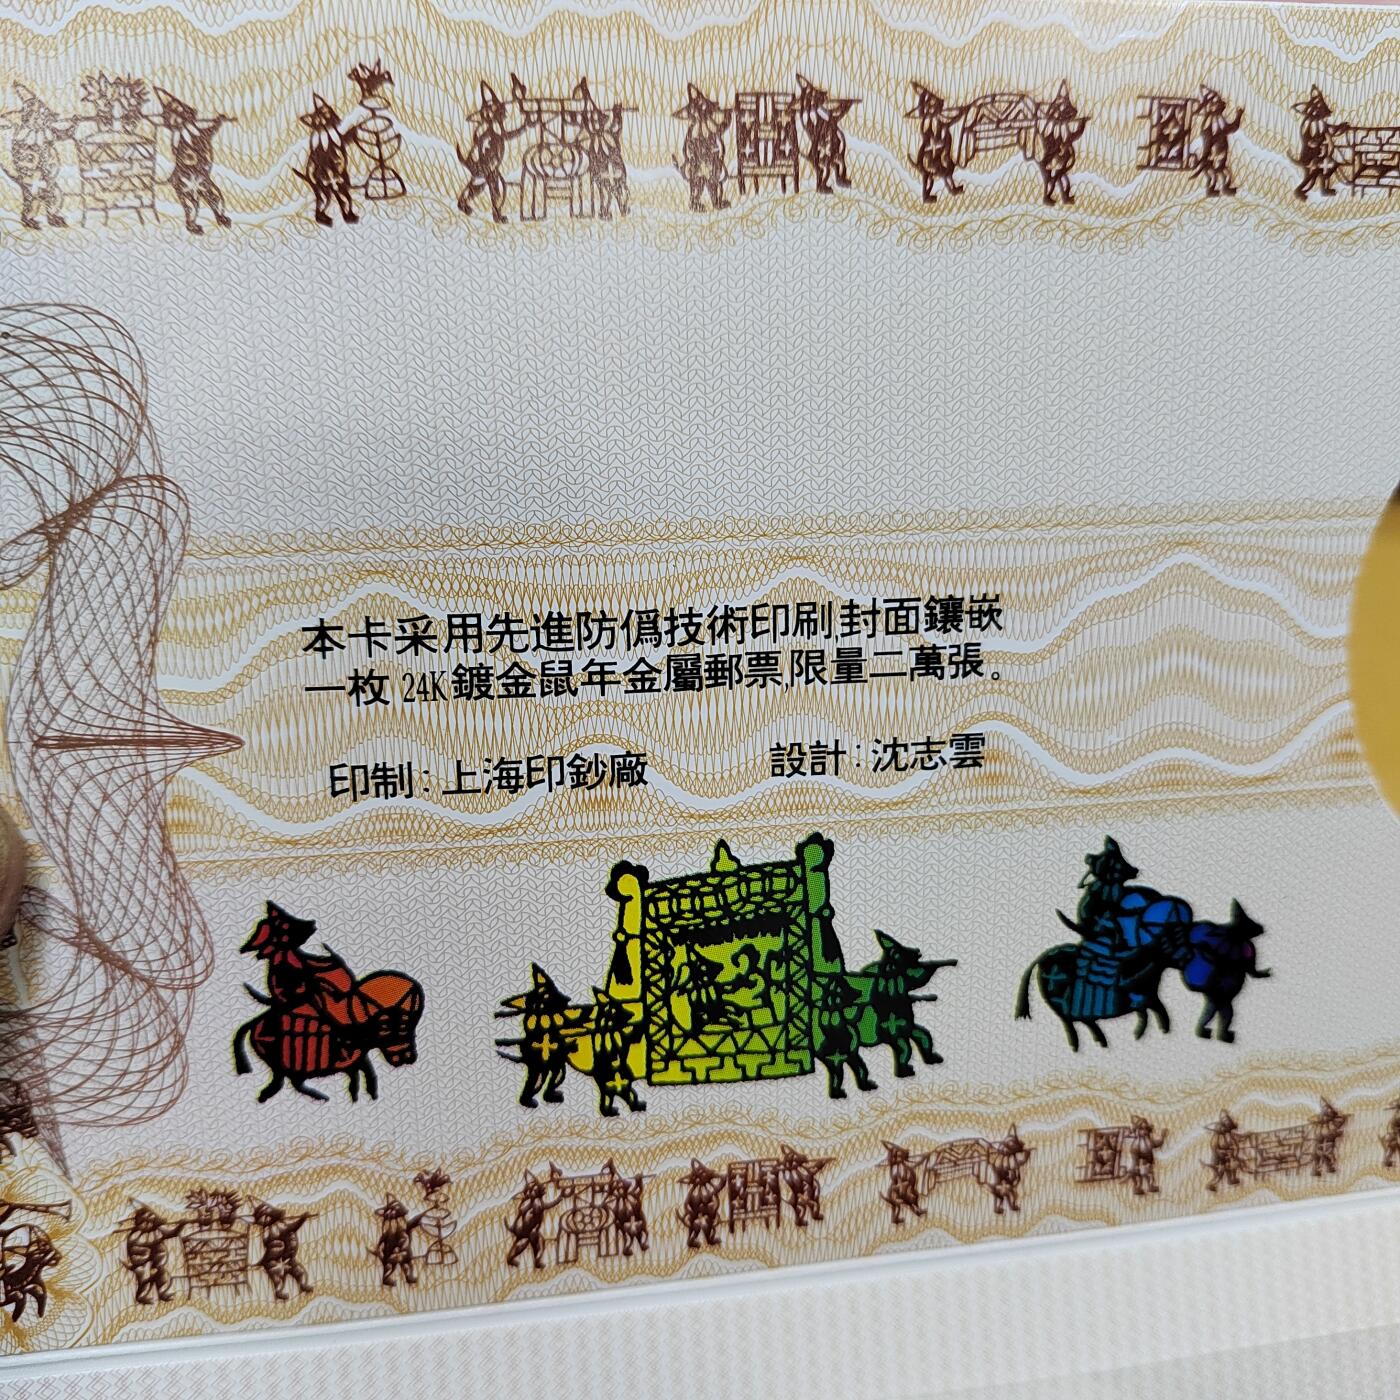 本卡采用先進防僞技術印刷,封面鑲嵌
一枚 24K鍍金鼠年金屬郵票,限量二萬張。
印制：上海印鈔廠 設計：沈志雲